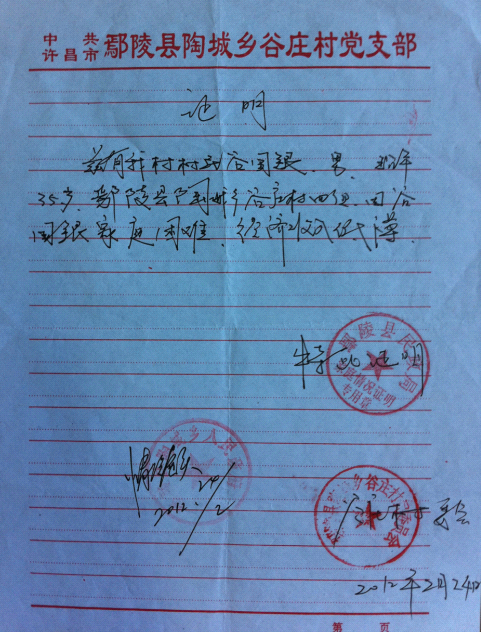 中共
许昌市 鄢陵县陶城乡谷庄村党支部
证明
兹有我村村民谷国银、男、现年
35岁,鄢陵县陶城乡谷庄村四组,因谷
国银家庭困难,经济收入低薄.
特此证明
鄢陵县民政局
情况证明
专用章
乡人民
情况属实
20/2
2012.
谷庄村委会
2012年2月24日
第 页